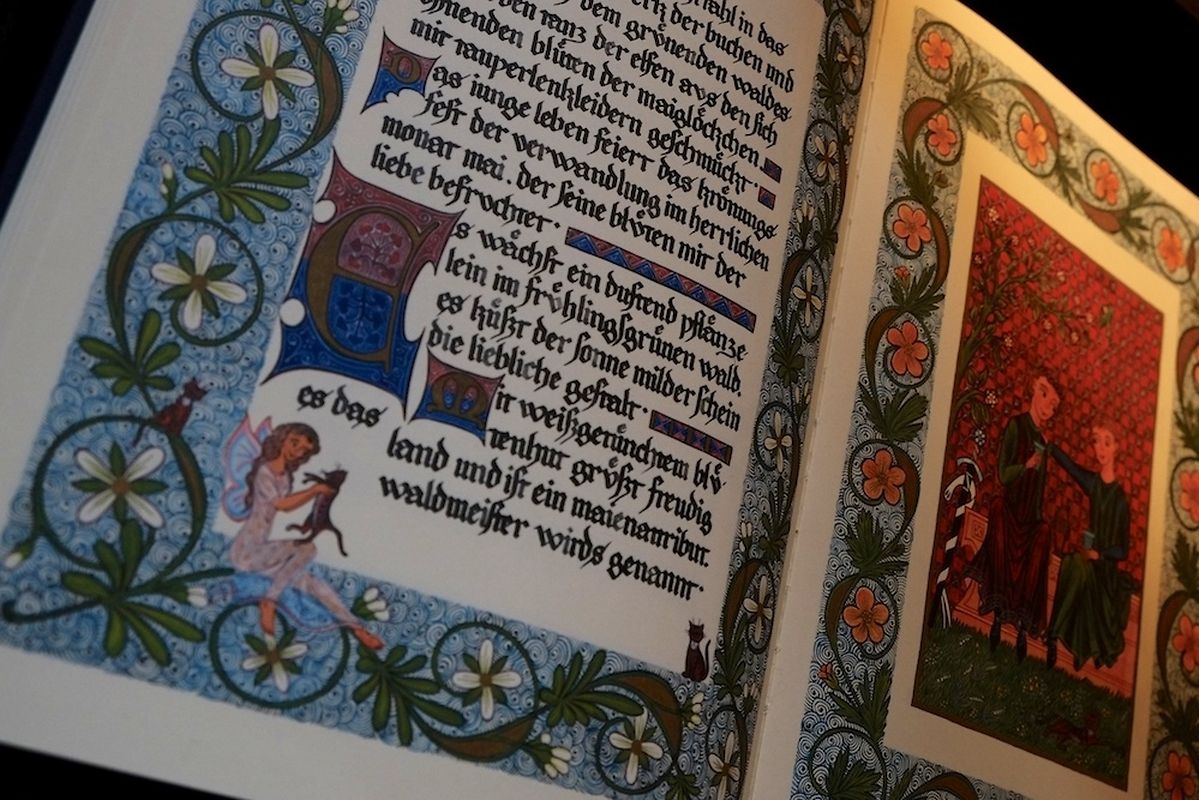 in das
der buchen und
dem grünenden waldes
tanz der elfen aus den sich
blüten der maiglöckchen.
mit tauperlenkleidern geschmückt.
Das iunge leben feiert das krönungs
fest der verwandlung im herrlichen
monat mai. der seine blüten mit der
liebe befruchtet.
Es wächst ein duftend pflänze
lein im frühlingsgrünen wald.
es küßt der sonne milder schein
die liebliche gestalt.
Mit weißgetünchtem blü
tenhut grüßt freudig
es das land und ist ein maienattribut.
waldmeister wirds genannt.